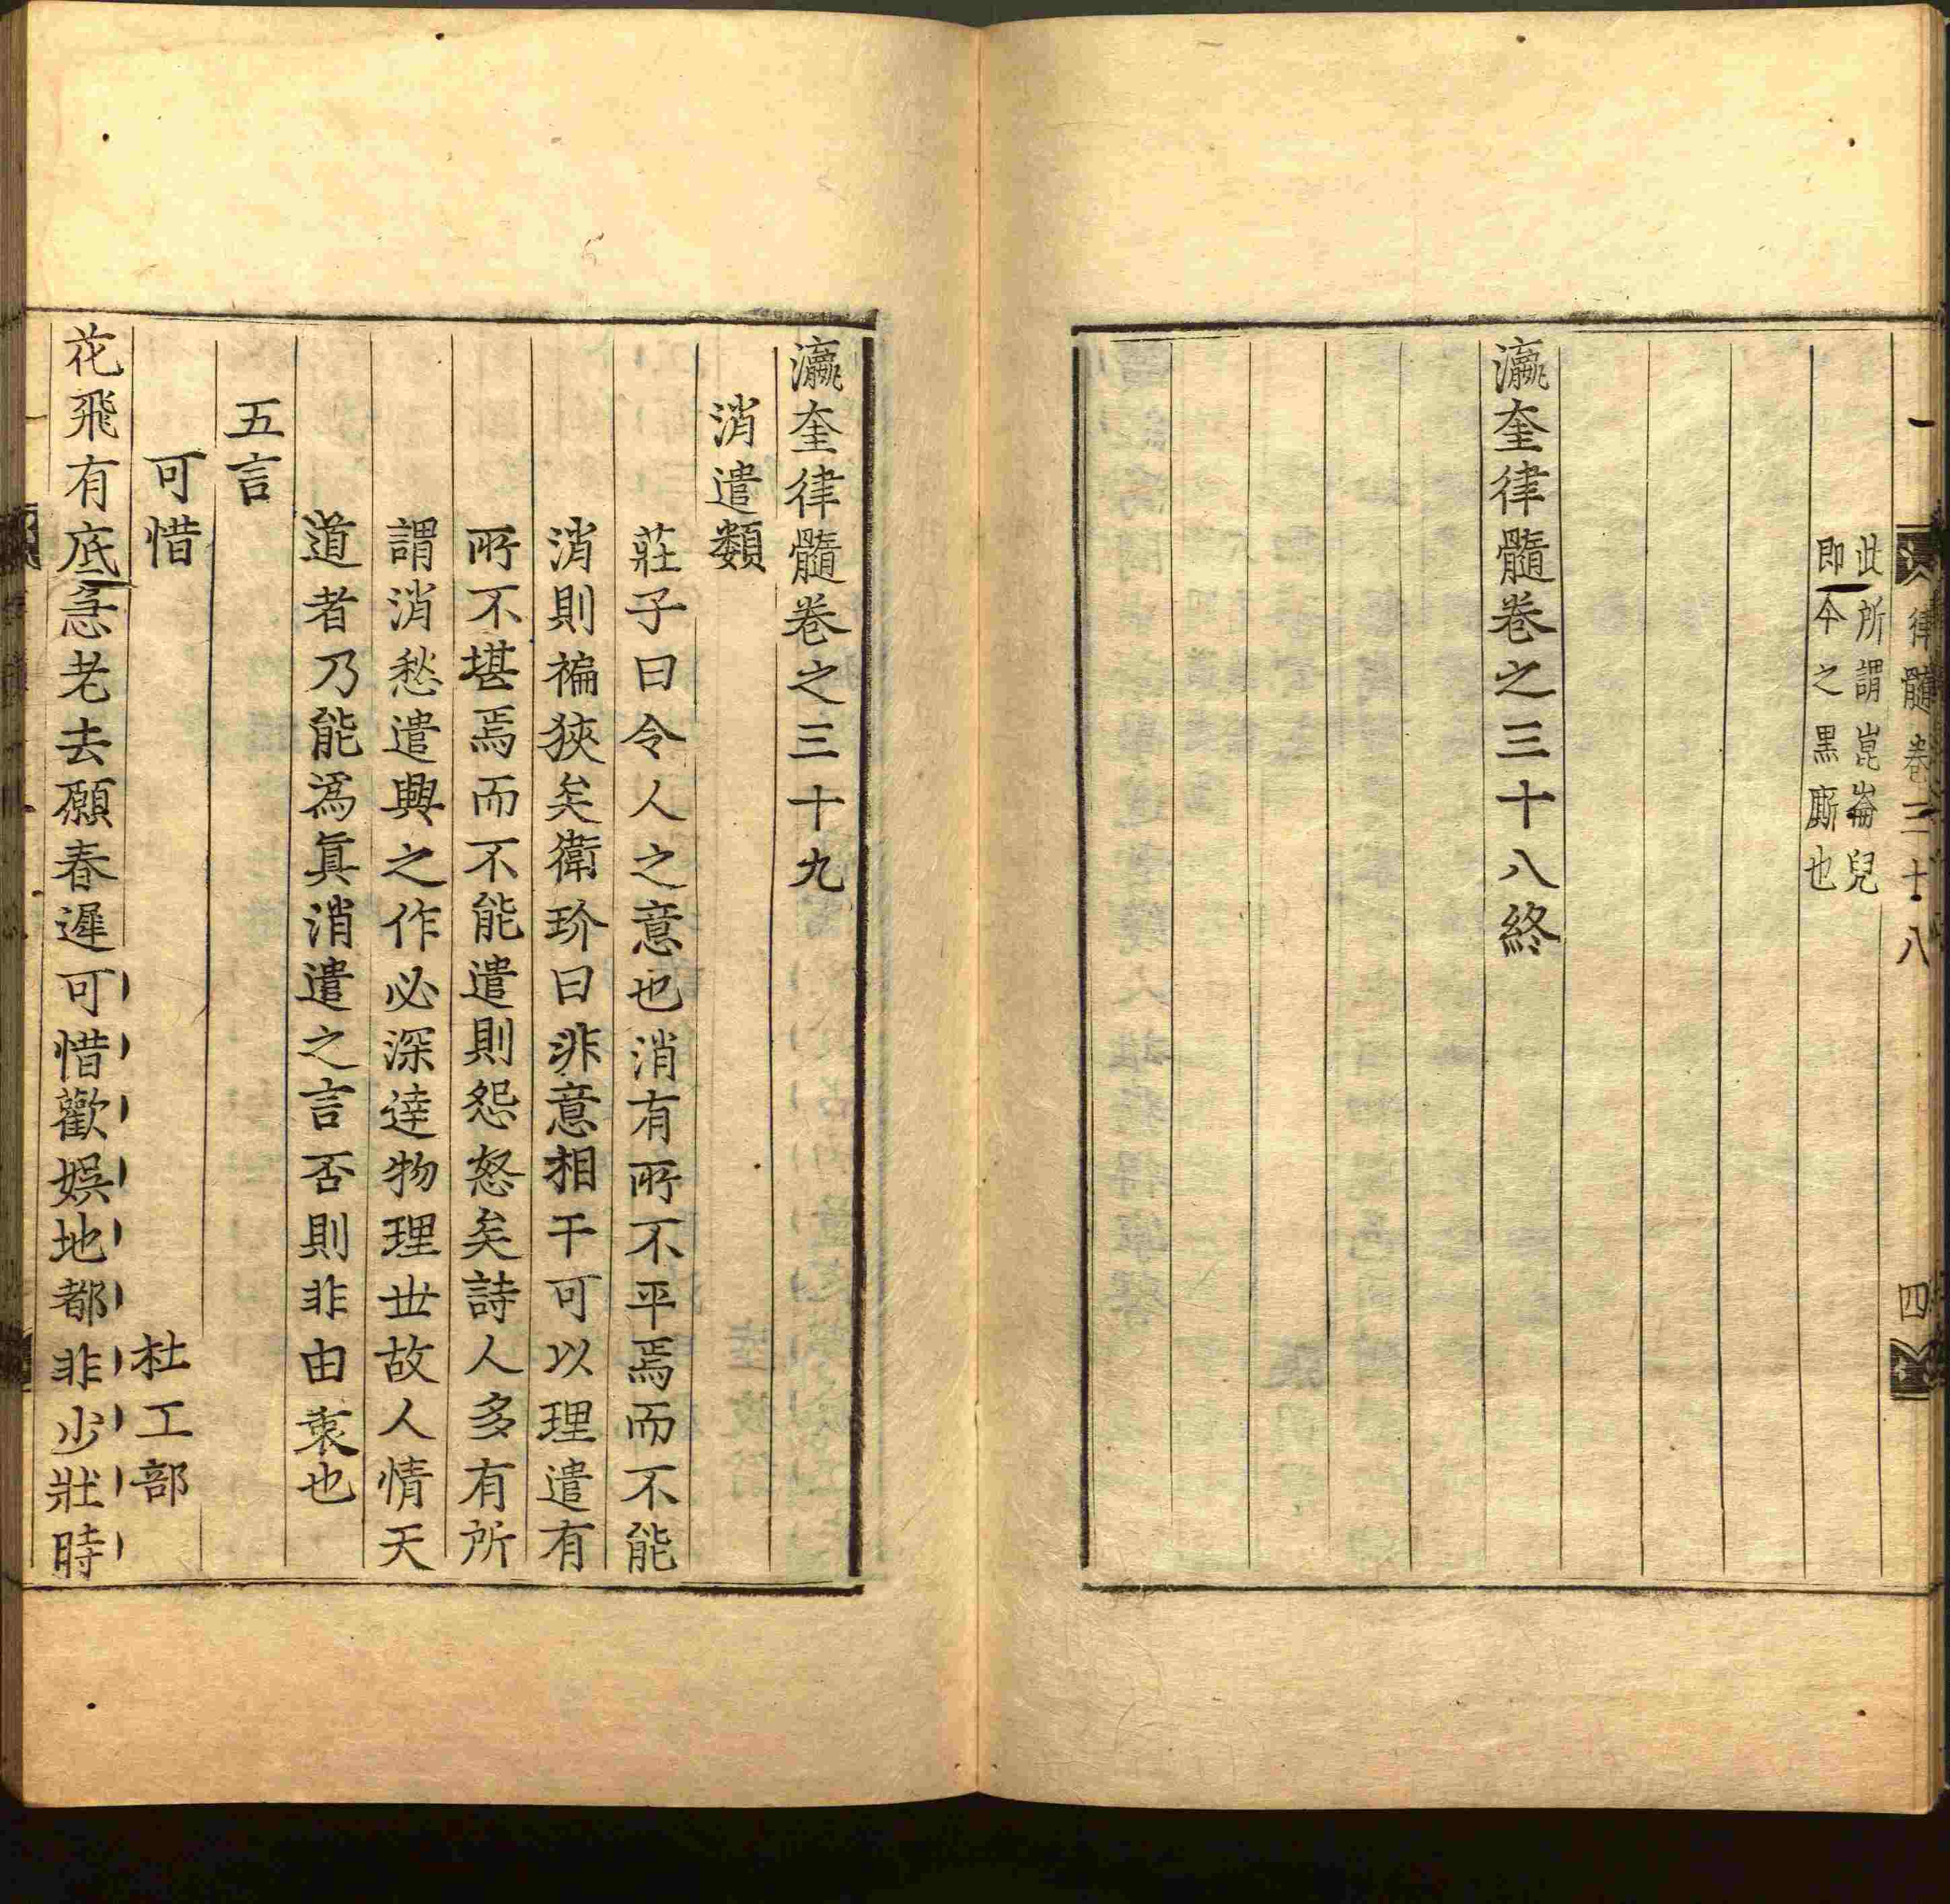 律髓卷三十八
四
此所謂崑崙兒
即今之黒廝也
瀛奎律髓卷之三十八終
瀛奎律髓卷之三十九
消遣類
莊子曰令人之意也消有所不平焉而不能
消則褊狹矣衛玠曰非意相干可以理遣有
所不堪焉而不能遣則怨怒矣詩人多有所
謂消愁遣興之作必深逹物理世故人情天
道者乃能爲眞消遣之言否則非由衷也
五言
可惜
杜工部
花飛有底急老去願春遲可惜歡娛地都非少壯時